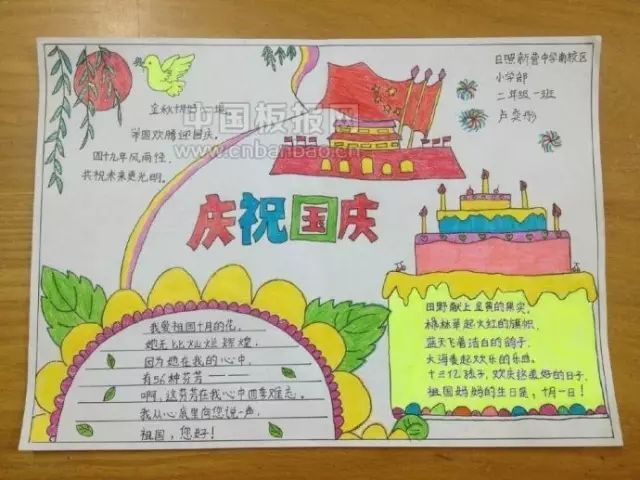 金秋十月
举国欢腾迎国庆。
四十九年风雨徑,
共祝未来更光明。
中国板报网
www.cnbanbao.cn
日照新营中学南校区
小学部
二年级一班
卢奕彤
庆祝国庆
我爱祖国十月的花,
她无比灿烂辉煌,
因为她在我的心中
有56种芬芳———
啊,这芬芳在我心中四季难忘。
我从心底里向您说一声,
祖国,您好!
田野献上金黄的果实,
枫林举起火红的旗帜,
蓝天飞着洁白的鸽子,
大海奏起欢乐的乐曲。
十三亿孩子,欢庆这美好的日子,
祖国妈妈的生日是,十月一日!